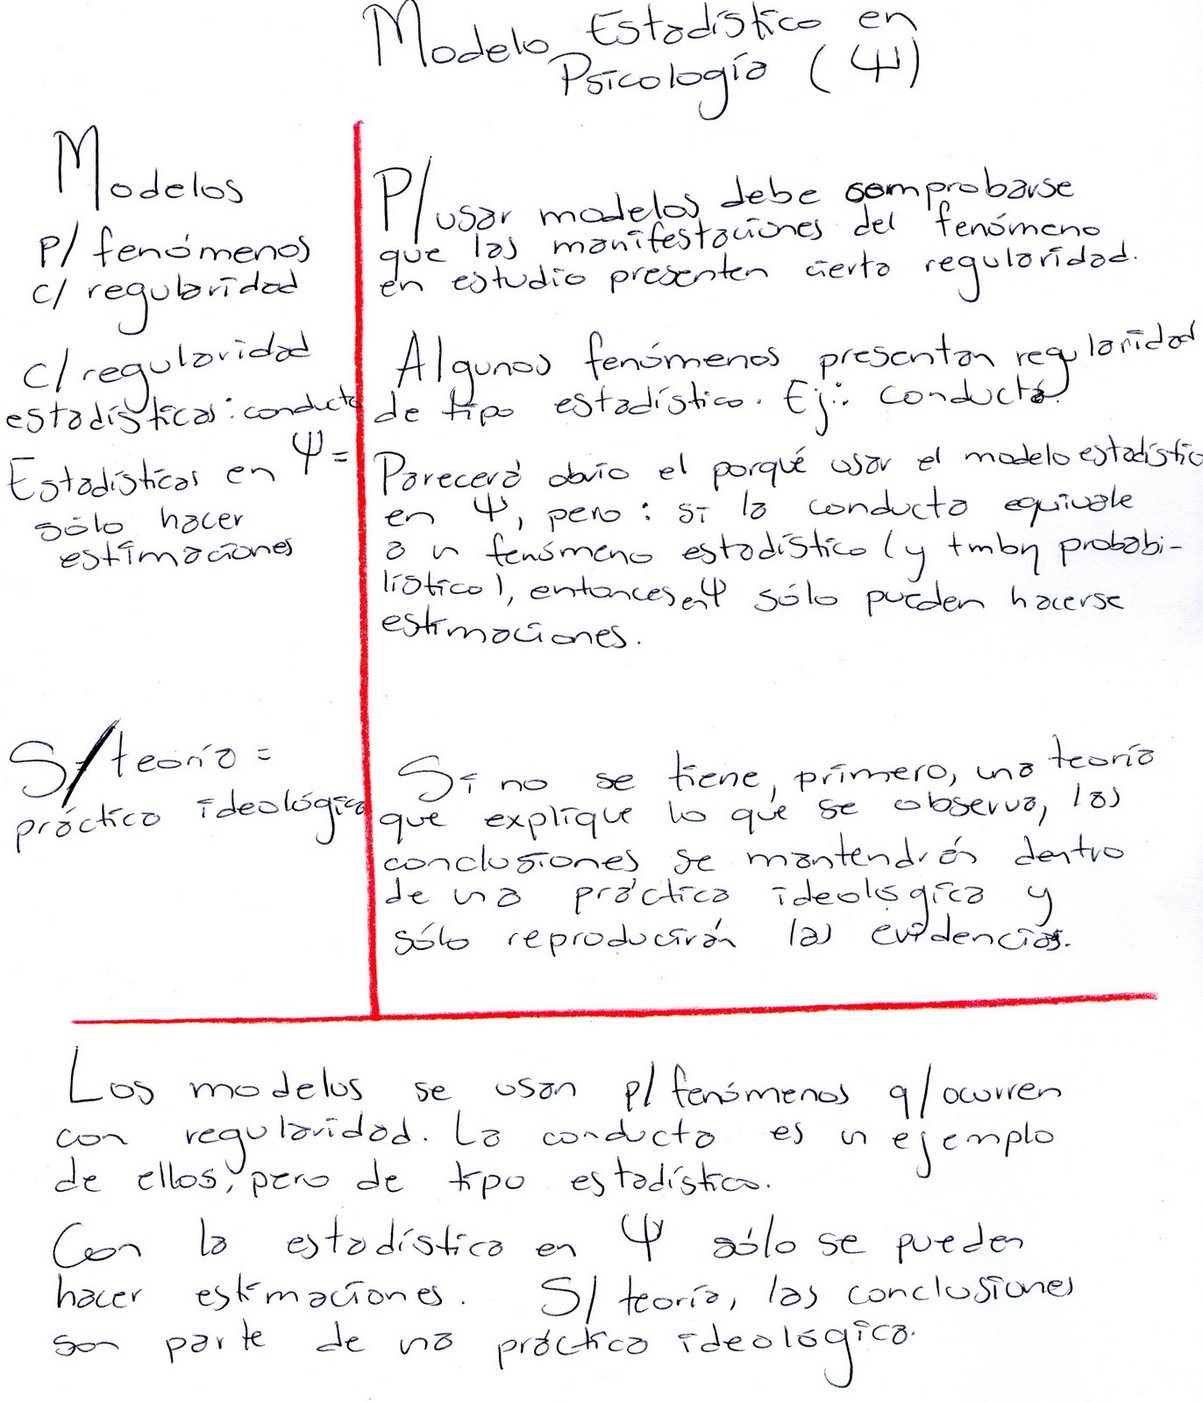 Modelo Estadístico en
Psicología (Ψ)
Modelos
P/ fenómenos
c/ regularidad
c/ regularidad
estadísticas: conducta
Estadísticas en Ψ =
sólo hacer
estimaciones
S/ teoría =
práctica ideológica
P/ usar modelos debe comprobarse
que las manifestaciones del fenómeno
en estudio presenten cierta regularidad.
Algunos fenómenos presentan regularidad
de tipo estadístico. Ej.: conducta
Parecerá obvio el porqué usar el modelo estadístic
en Ψ, pero: si la conducta equivale
a un fenómeno estadístico (y tmbn probabi-
lístico), entonces en Ψ sólo pueden hacerse
estimaciones.
Si no se tiene, primero, una teoría
que explique lo que se observa, las
conclusiones se mantendrán dentro
de una práctica ideológica y
sólo reproducirán las evidencias.
Los modelos se usan p/ fenómenos q/ ocurren
con regularidad. La conducta es un ejemplo
de ellos, pero de tipo estadístico.
Con la estadística en Ψ sólo se pueden
hacer estimaciones. S/ teoría, las conclusiones
son parte de una práctica ideológica.